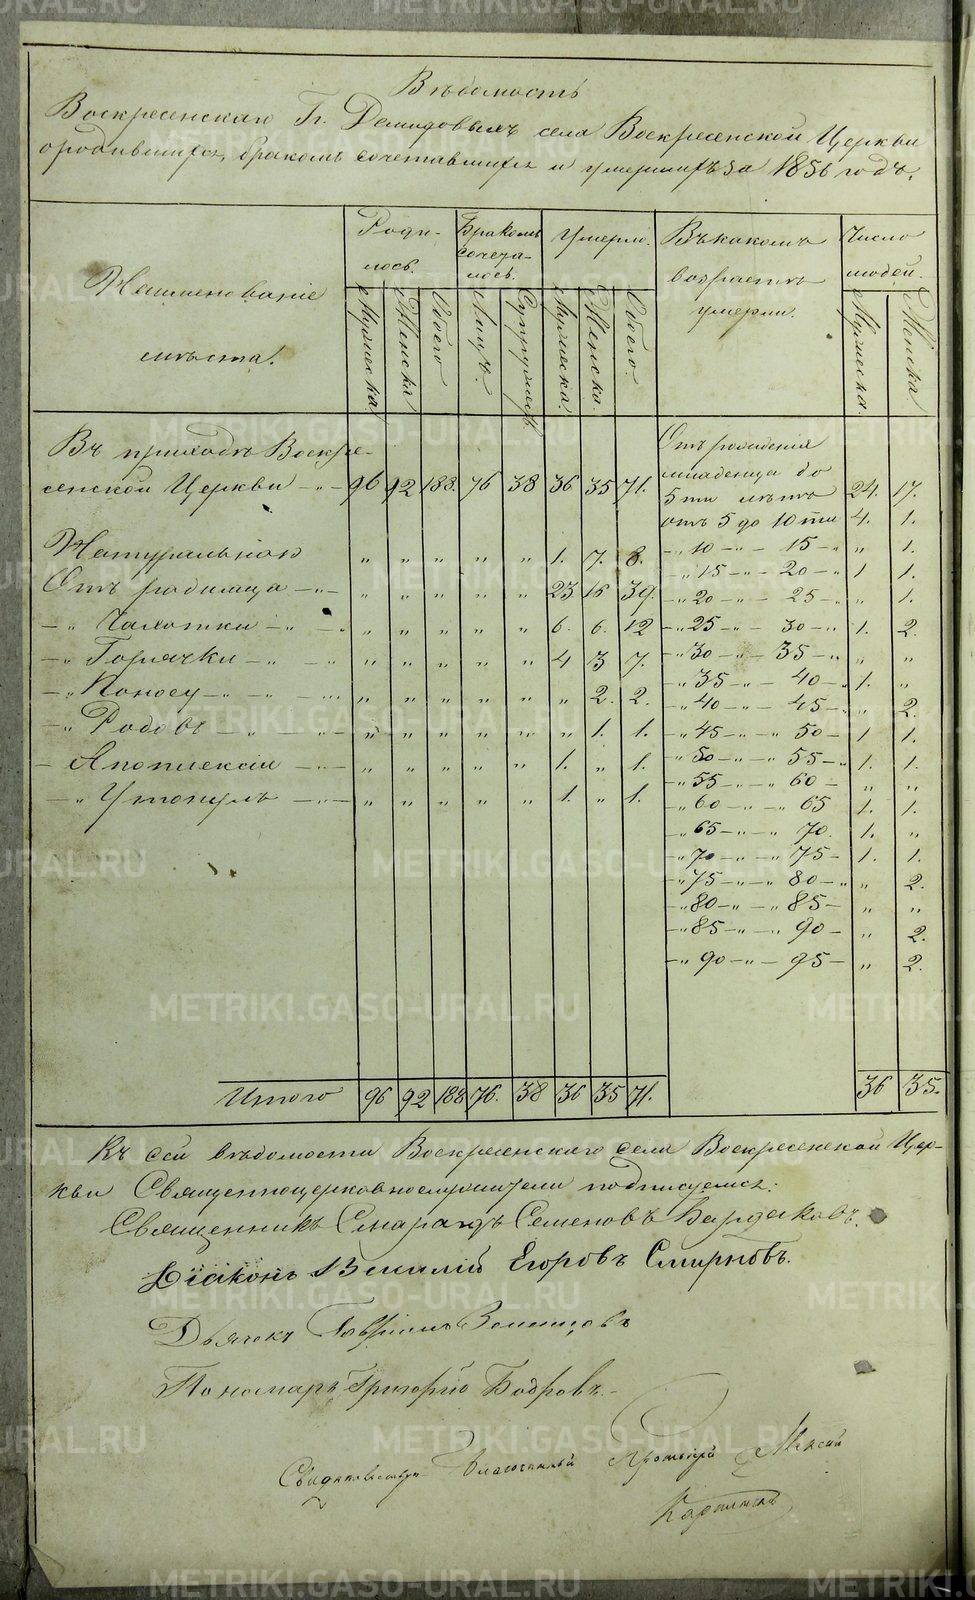 Вѣдомость
Воскресенскаго Гг. Демидовыхъ села Воскресенской Церкви
о родившихся, бракомъ сочетавшихся и умершихъ за 1856 годъ.
Наименованіе мѣста.
Родилось. Мужеска. Женска Обоего
Бракомъ сочеталось. Лицъ. Супружествъ
Умерло. Мужеска. Женска. Обоего.
Въ какомъ возрастѣ умерли.
Число людей. Мужеска Женска
Въ приходѣ Воскре-
сенской Церкви 96 92 188. 76 38 36 35 71.
Натуральною „ „ „ „ „ 1. 7. 8.
Отъ родимца „ „ „ „ „ 23 16 39.
„ Чахотки „ „ „ „ „ 6. 6. 12
„ Горячки „ „ „ „ „ 4 3 7.
„ Поносу „ „ „ „ „ „ 2. 2.
„ Родовъ „ „ „ „ „ „ 1. 1.
Апоплексіи „ „ „ „ „ 1. „ 1.
„ Утонулъ „ „ „ „ „ 1. „ 1.
Отъ рожденія
младенца до
5ти лѣтъ 24. 17.
отъ 5 до 10ти 4. 1.
„ 10 „ 15 „ „ 1.
„ 15 „ 20 „ 1 1.
„ 20 „ 25 „ „ 1.
„ 25 „ 30 „ 1. 2.
„ 30 „ 35 „ „ „
„ 35 „ 40 „ 1. „
„ 40 „ 45 „ „ 2.
„ 45 „ „ 50 1 1.
„ 50 „ „ 55 „ 1. 1.
„ 55 „ „ 60 „ „
„ 60 „ „ 65 1. 1.
„ 65 „ „ 70. 1. „
„ 70 „ „ 75 1. 1.
„ 75 „ „ 80 „ „ 2.
„ 80 „ „ 85 „ „
„ 85 „ „ 90 „ 2.
„ 90 „ 95 „ 2.
Итого 96 92 188 76. 38 36 35 71. 36 35.
Къ сей вѣдомости Воскресенскаго села Воскресенской Цер-
кви Священноцерковнослужители подписуемся:
Священникъ Смарагдъ Семеновъ Бардаковъ.
Діаконъ Василій Егоровъ Смирновъ.
Дьячекъ Гавріилъ
Пономарь Григорій Бодровъ.
Благочинный Протоіерей Алексій
METRIKI.GASO-URAL.RU